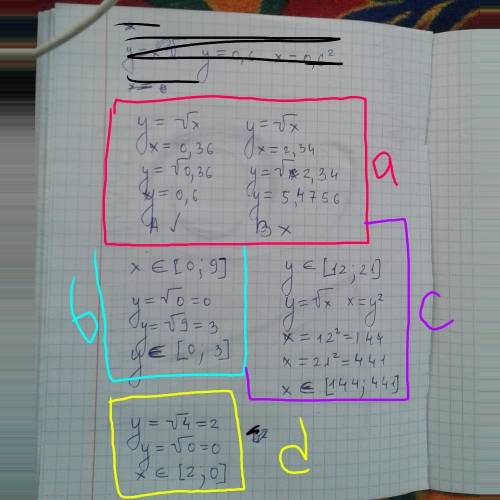 y = √x
x = 0,36
y = √0,36
y = 0,6
A ✓
y = √x
x = 2,34
y = √2,34
y = 5,4756
B x
a
x ∈ [0; 9]
y = √0 = 0
y = √9 = 3
y ∈ [0; 3]
b
y ∈ [12; 21]
y = √x x = y²
x = 12² = 144
x = 21² = 441
x ∈ [144; 441]
c
y = √4 = 2
y = √0 = 0
x ∈ [2; 0]
d